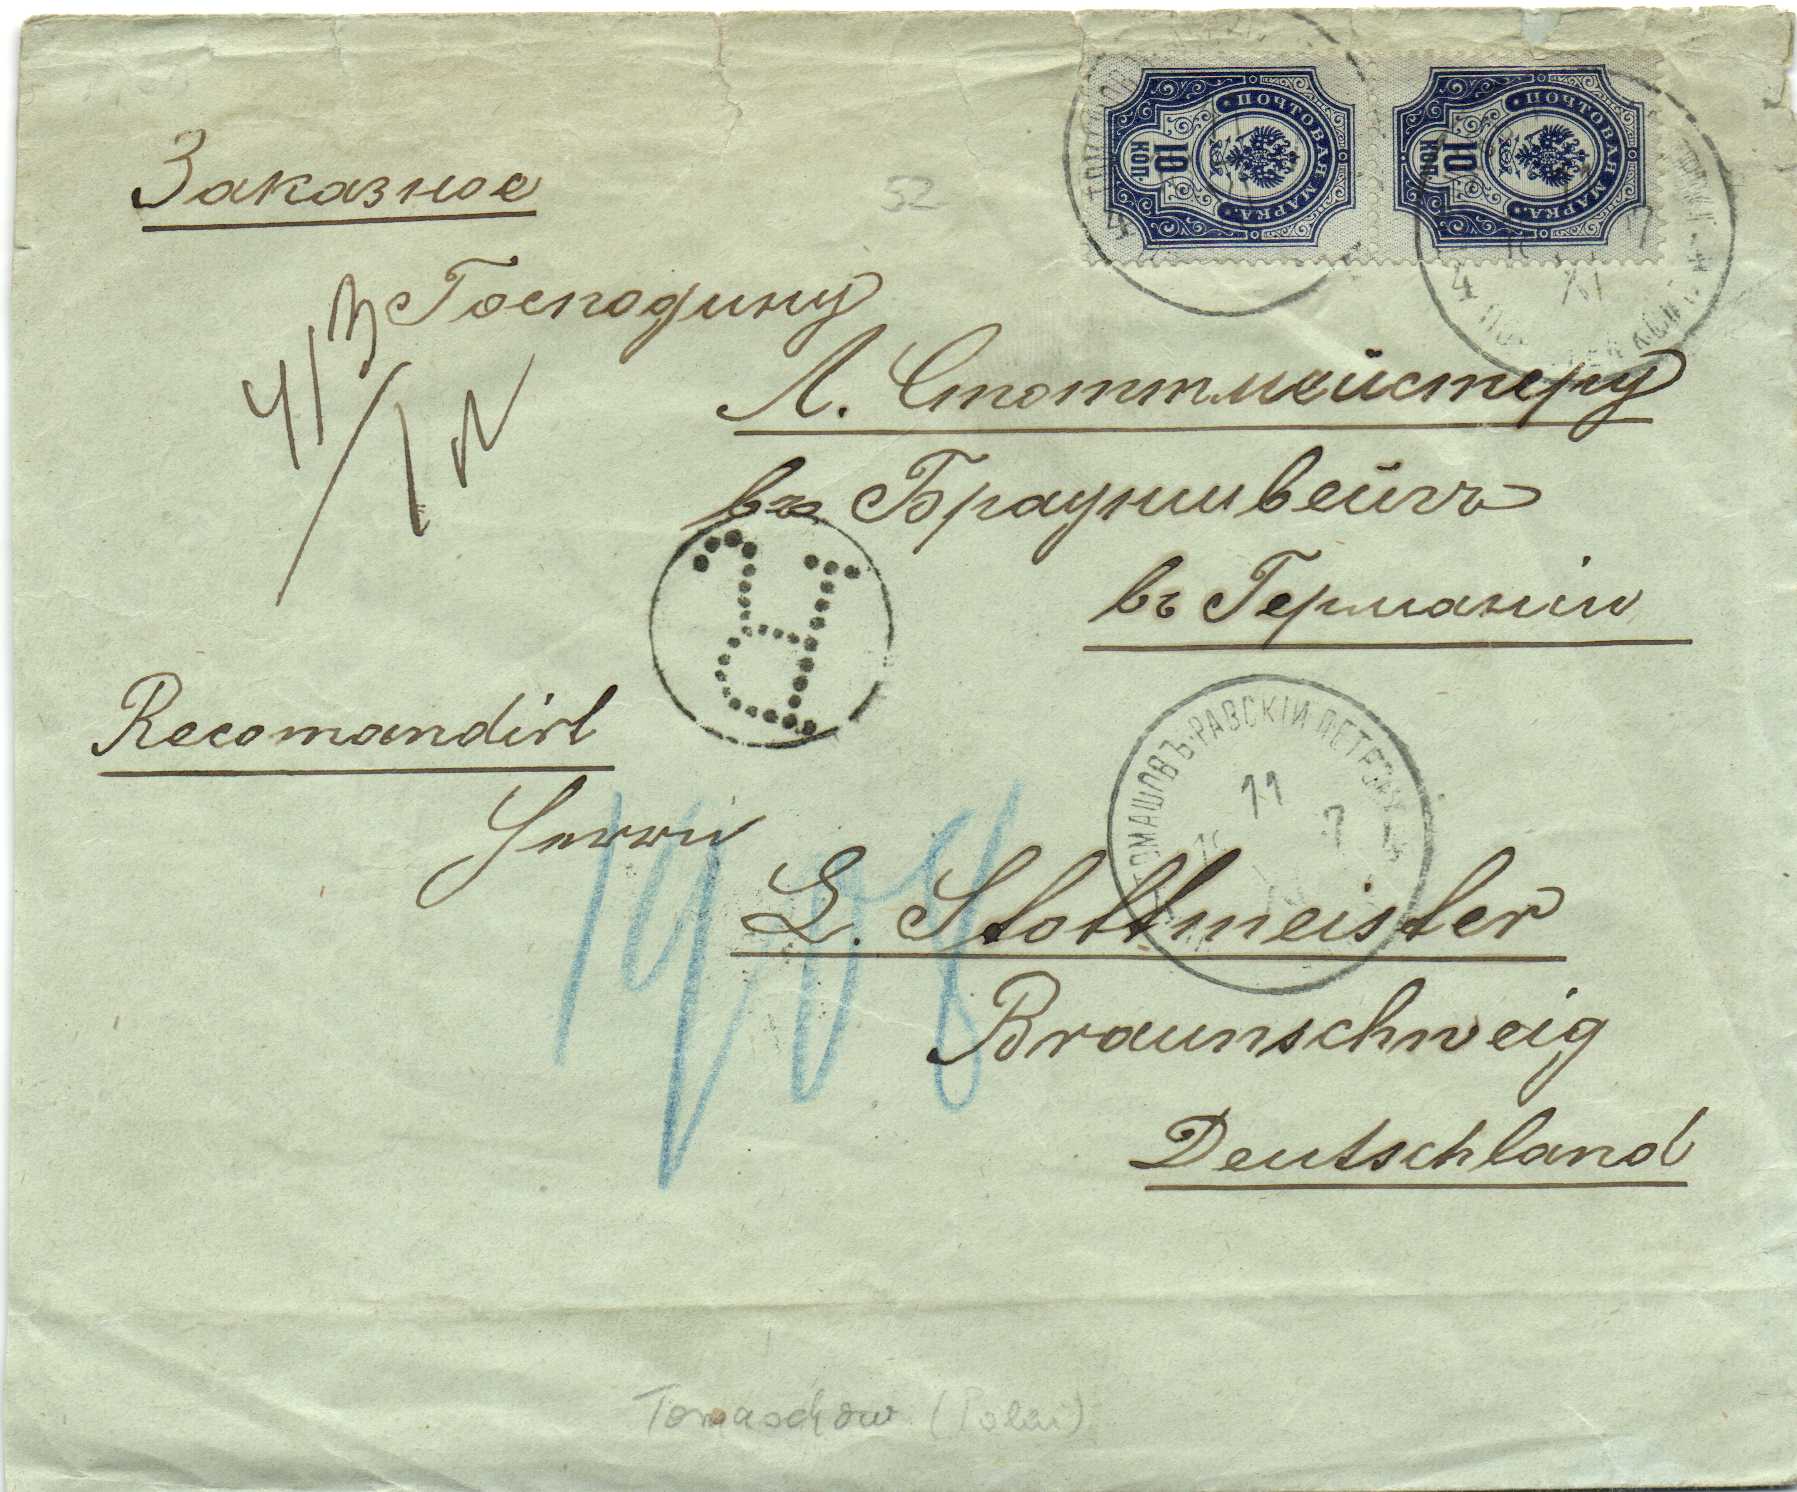 Заказное
52
ПОЧТОВАЯ МАРКА.
10
КОП.
ПОЧТОВАЯ МАРКА.
10
КОП.
4
4
Господину
413
Л. Стоттмейстеру
въ Брауншвейгъ
въ Германіи
R
Recomandirt
ТОМАШОВЪ-РАВСКІЙ ПЕТРОК
11
7
Herrn
L. Stottmeister
Braunschweig
Deutschland
Tomaschow (Polen)